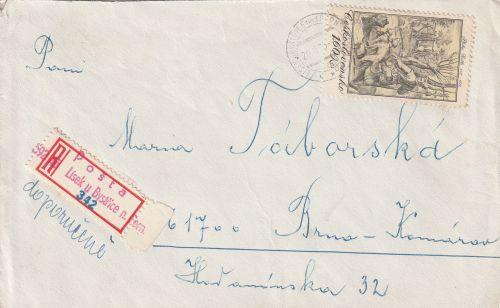 Československo
1,60 Kčs
Paní
Maria Táborská
592
R
Pošta
Lísek u Bystřice n. Pern.
342
doporučeně
61700 Brno-Komárov
Hodonínska 32